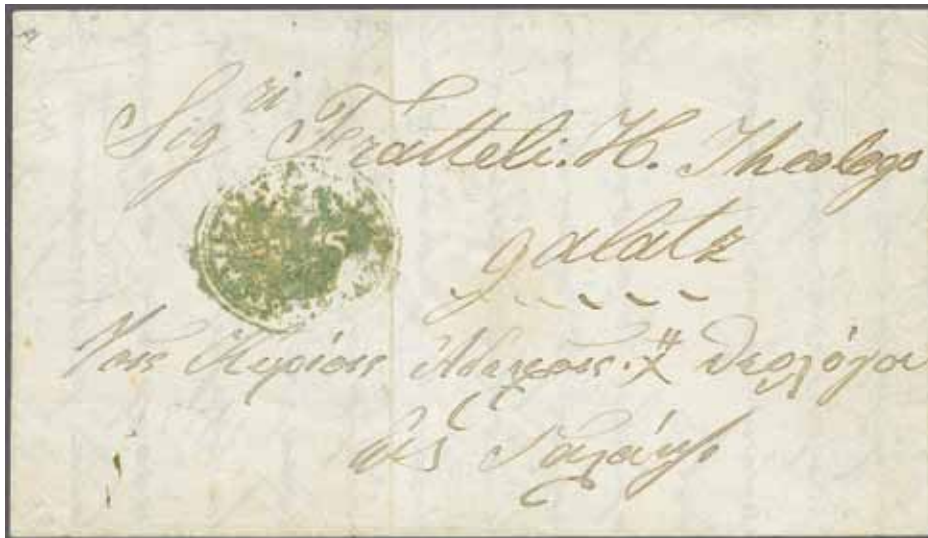 Sig^ri Fratteli. H. Theologo
galatz
Τοις Κυρίοις Αδελφοίς. Χ" Θεολόγου
εις Γαλάτζι